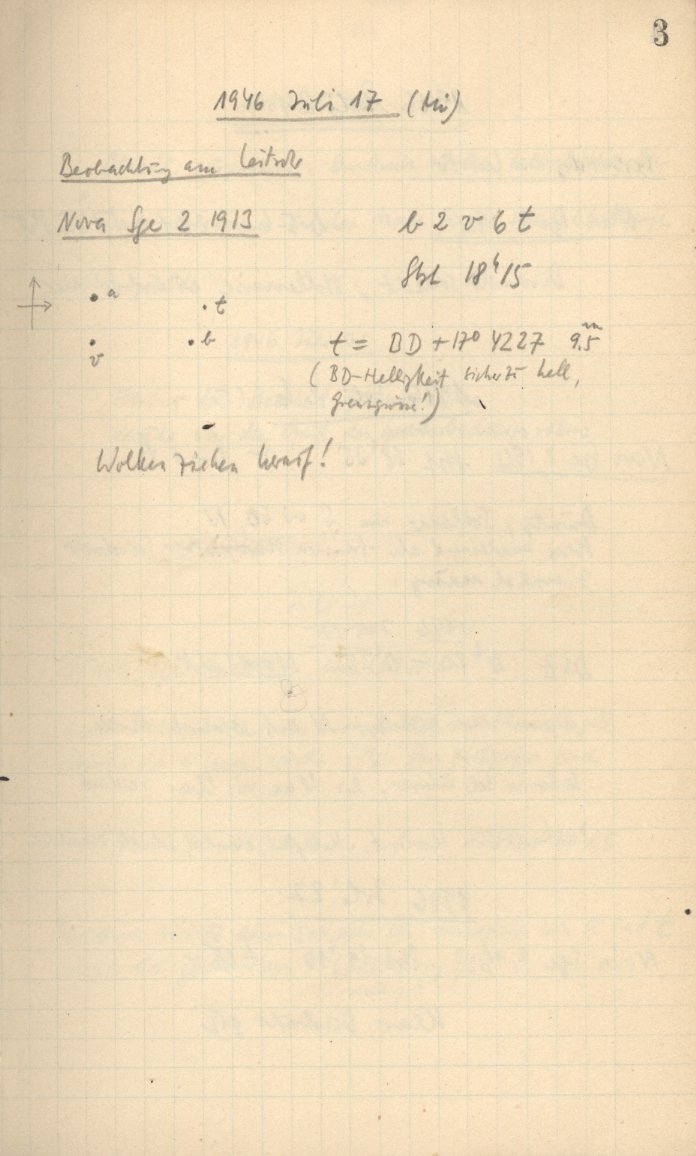 3
1946 Juli 17 (Mi)
Beobachtung am Leitrohr
Nova Sge 2 1913
b 2 v 6 t
Stzt 18ʰ15
a
t
b
v
t = BD +17° 4227 9.5ᵐ
(BD-Helligkeit sicher zu hell,
Grenzgrösse!)
Wolken ziehen herauf!